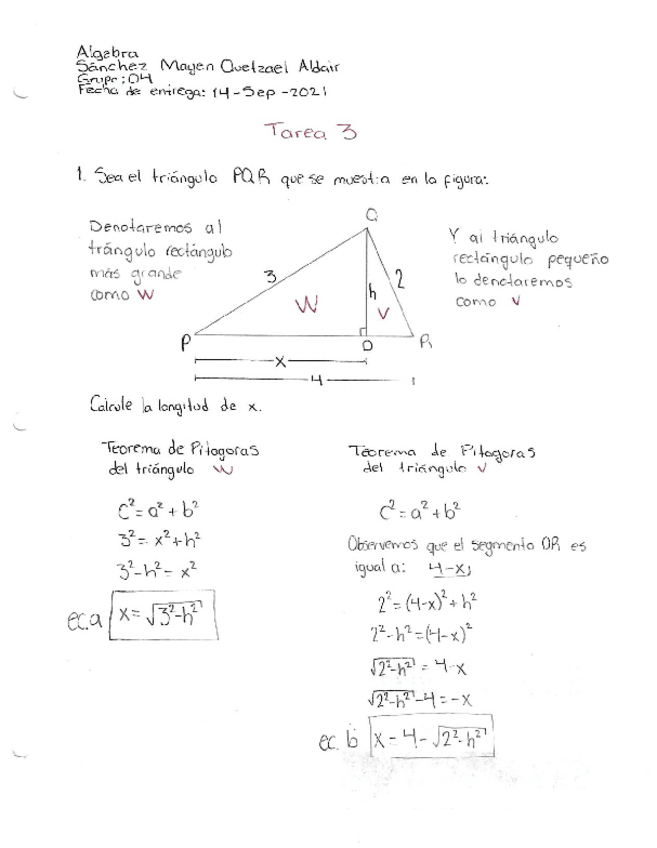 Algebra
Sánchez Mayen Quetzael Aldair
Grupo: 04
Fecha de entrega: 14-Sep-2021
Tarea 3
1. Sea el triángulo PQR que se muestra en la figura:
Denotaremos al
trángulo rectángulo
más grande
como W
Y al triángulo
rectángulo pequeño
lo denotaremos
como V
Q
3
2
h
W
V
P
D
R
x
4
Calcule la longitud de x.
Teorema de Pitagoras
del triángulo W
C²=a²+b²
3²=x²+h²
3²-h²=x²
ec.a x=√3²-h²
Teorema de Pitagoras
del triángulo V
C²=a²+b²
Observemos que el segmento DR es
igual a: 4-x;
2²=(4-x)²+h²
2²-h²=(4-x)²
√2²-h² = 4-x
√2²-h²-4=-x
ec. b x=4-√2²-h²